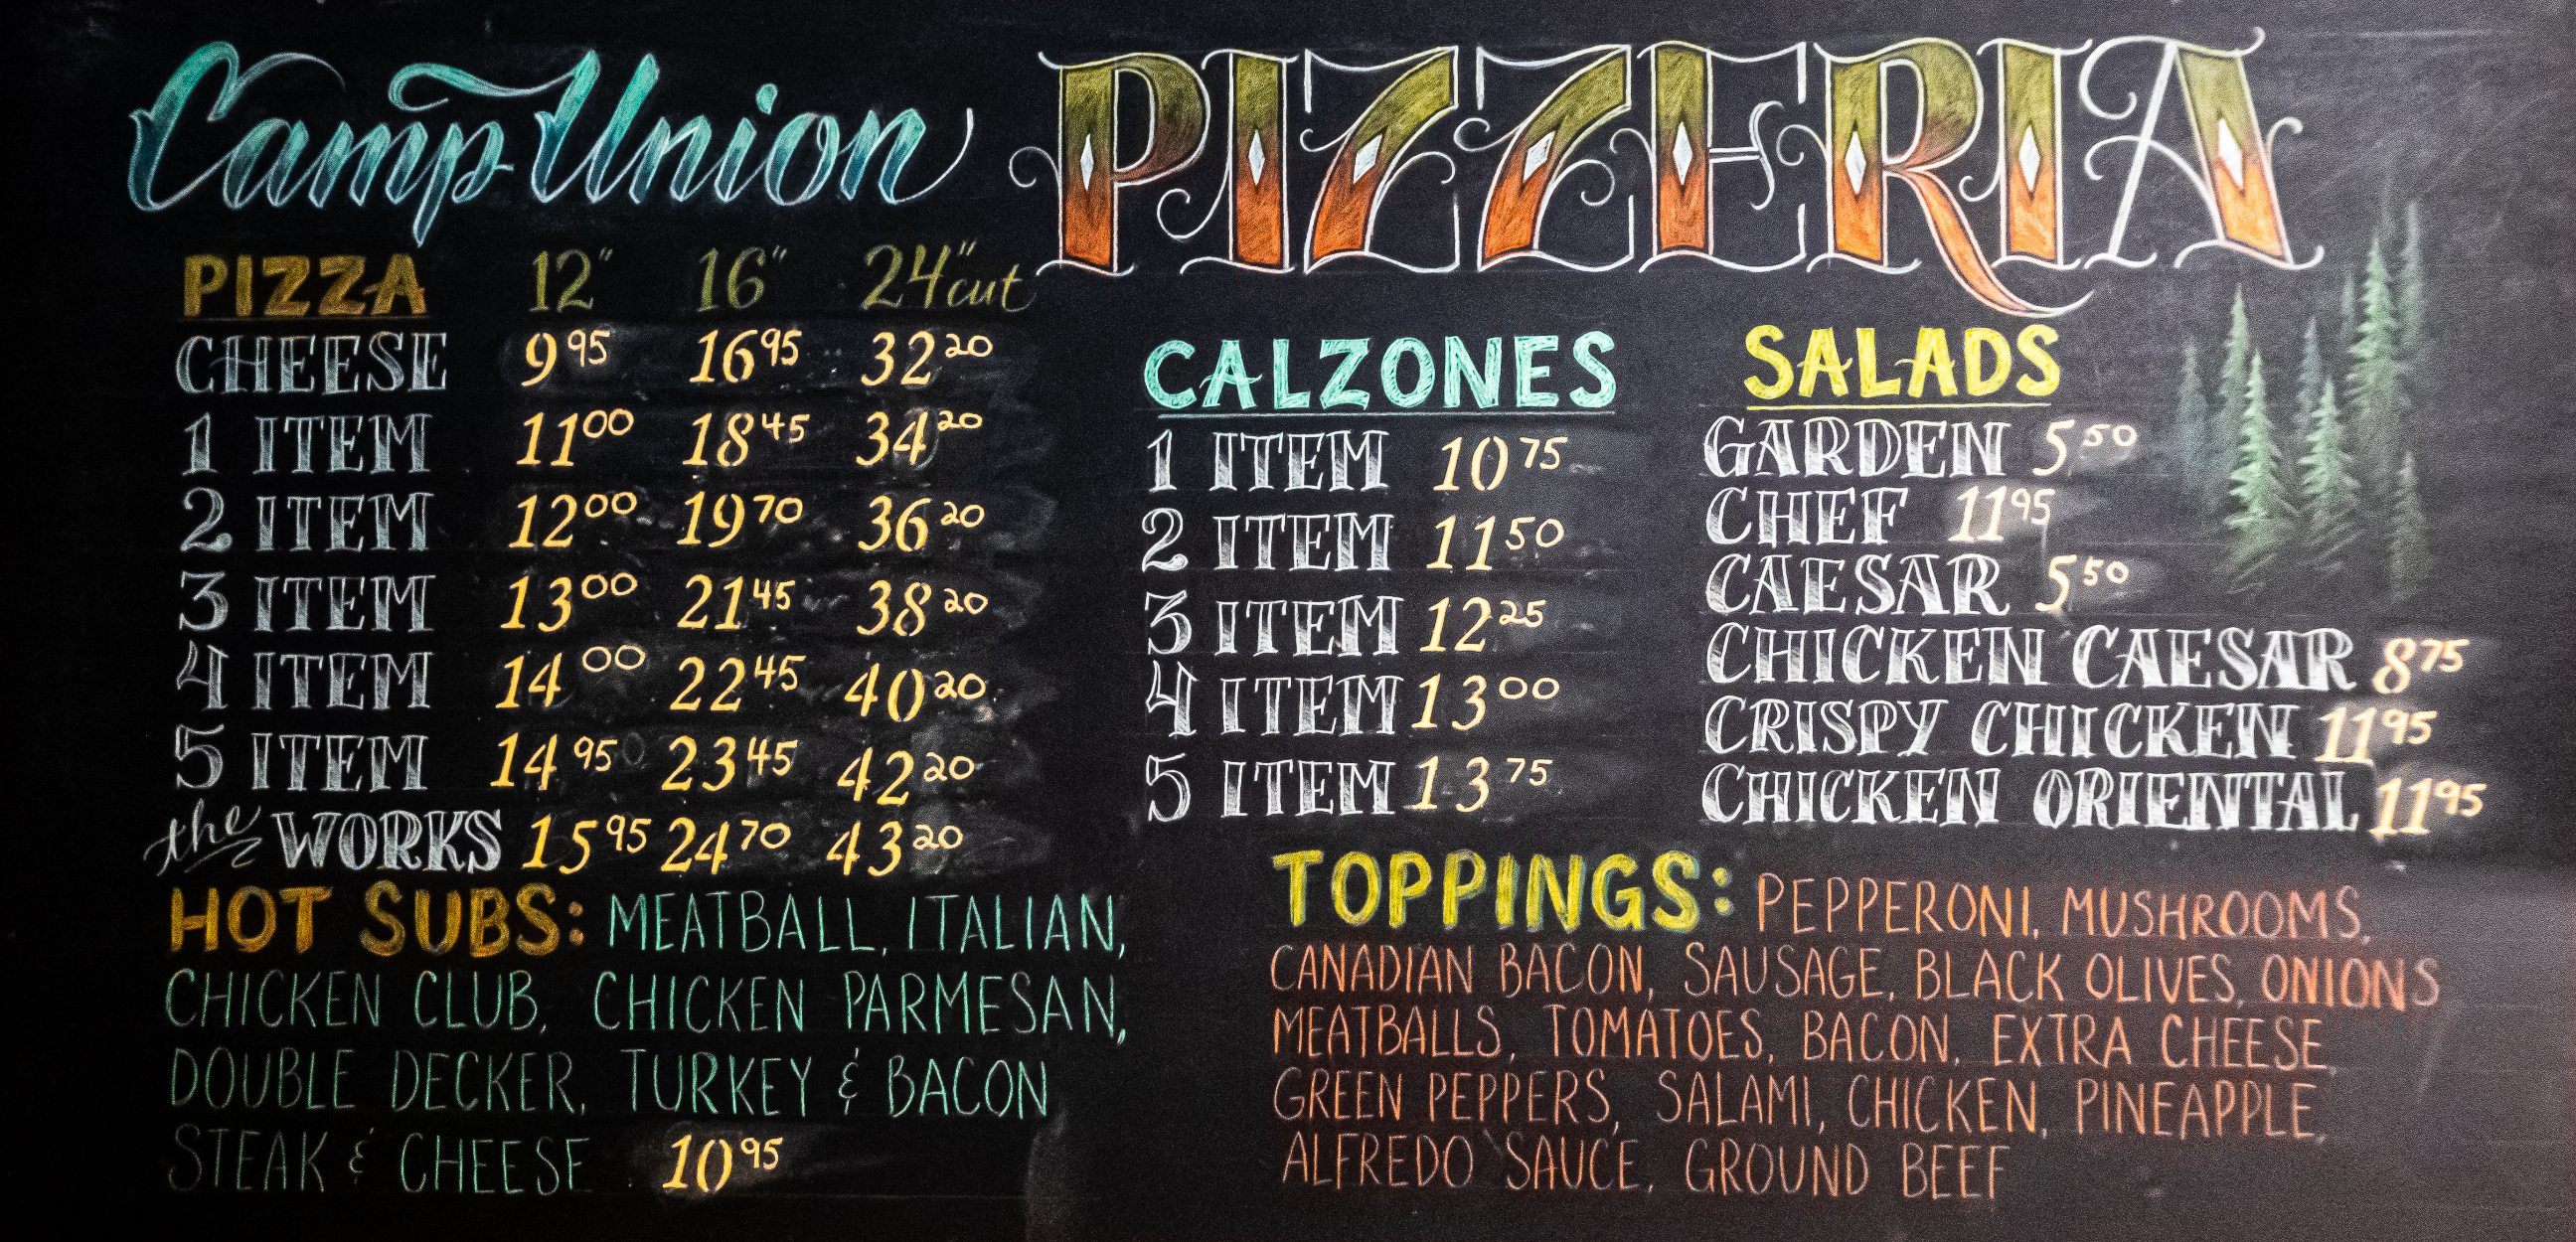 Camp Union PIZZERIA
PIZZA 12" 16" 24" cut
CHEESE 9 95 16 95 32 20
1 ITEM 11 00 18 45 34 20
2 ITEM 12 00 19 70 36 20
3 ITEM 13 00 21 45 38 20
4 ITEM 14 00 22 45 40 20
5 ITEM 14 95 23 45 42 20
the WORKS 15 95 24 70 43 20
HOT SUBS: MEATBALL, ITALIAN,
CHICKEN CLUB, CHICKEN PARMESAN,
DOUBLE DECKER, TURKEY & BACON
STEAK & CHEESE 10 95
CALZONES
1 ITEM 10 75
2 ITEM 11 50
3 ITEM 12 25
4 ITEM 13 00
5 ITEM 13 75
SALADS
GARDEN 5 50
CHEF 11 95
CAESAR 5 50
CHICKEN CAESAR 8 75
CRISPY CHICKEN 11 95
CHICKEN ORIENTAL 11 95
TOPPINGS: PEPPERONI, MUSHROOMS,
CANADIAN BACON, SAUSAGE, BLACK OLIVES, ONIONS
MEATBALLS, TOMATOES, BACON, EXTRA CHEESE,
GREEN PEPPERS, SALAMI, CHICKEN, PINEAPPLE,
ALFREDO SAUCE, GROUND BEEF